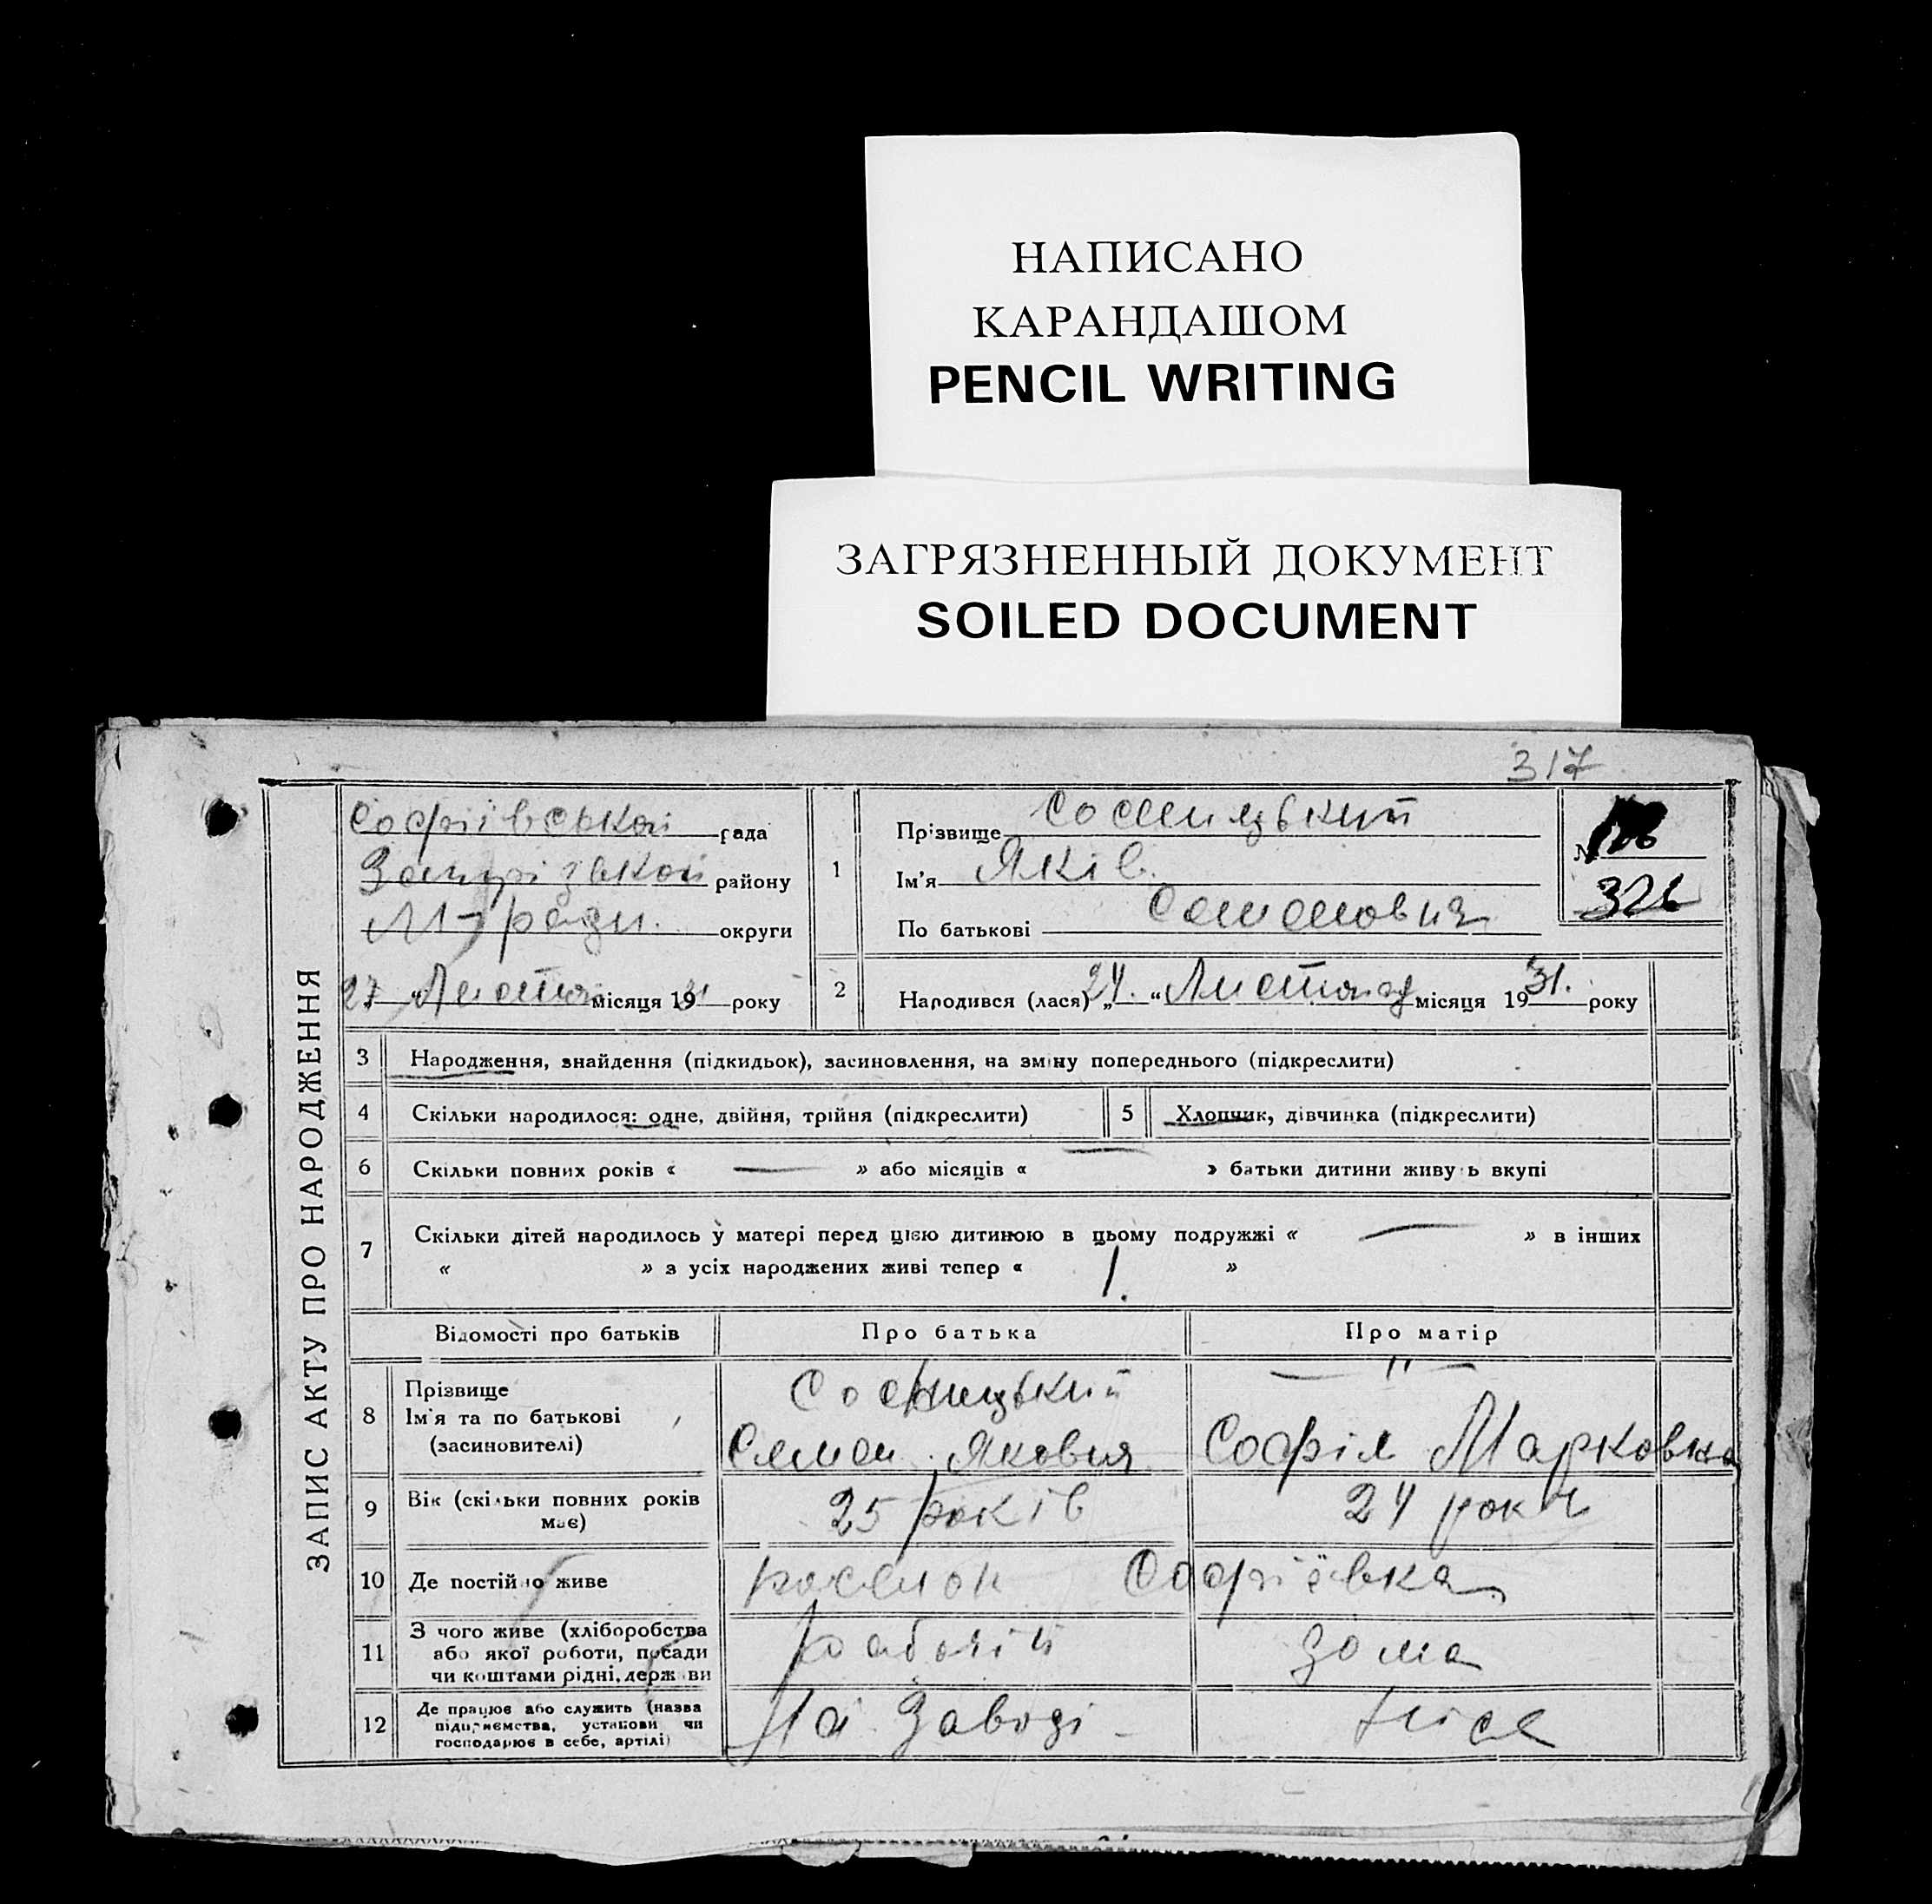 НАПИСАНО
КАРАНДАШОМ
PENCIL WRITING
ЗАГРЯЗНЕННЫЙ ДОКУМЕНТ
SOILED DOCUMENT
317
ЗАПИС АКТУ ПРО НАРОДЖЕННЯ
Софіївської рада
району
М-ради. округи
27 „ місяця 1931 року
1
Прізвище Сосницький
Ім'я Яків.
По батькові Семенович
№
326
2
Народився (лася) „24. “ Листопад місяця 1931. року
3 Народження, знайдення (підкидьок), засиновлення, на зміну попереднього (підкреслити)
4 Скільки народилося: одне, двійня, трійня (підкреслити)
5 Хлопчик, дівчинка (підкреслити)
6 Скільки повних років « — » або місяців « — » батьки дитини живуть вкупі
7 Скільки дітей народилось у матері перед цією дитиною в цьому подружжі « — » в інших
« » з усіх народжених живі тепер « 1. »
Відомості про батьків Про батька Про матір
8 Прізвище
Ім'я та по батькові
(засиновителі)
Сосницький
Семен Якович
— " —
Софія Марковна
9 Вік (скільки повних років
має)
25 років
24 роки
10 Де постійно живе
Софіївка
11 З чого живе (хліборобства
або якої роботи, посади
чи коштами рідні, держави
рабочій
дома
12 Де працює або служить (назва
підприємства, установи чи
господарює в себе, артілі)
На Заводі -